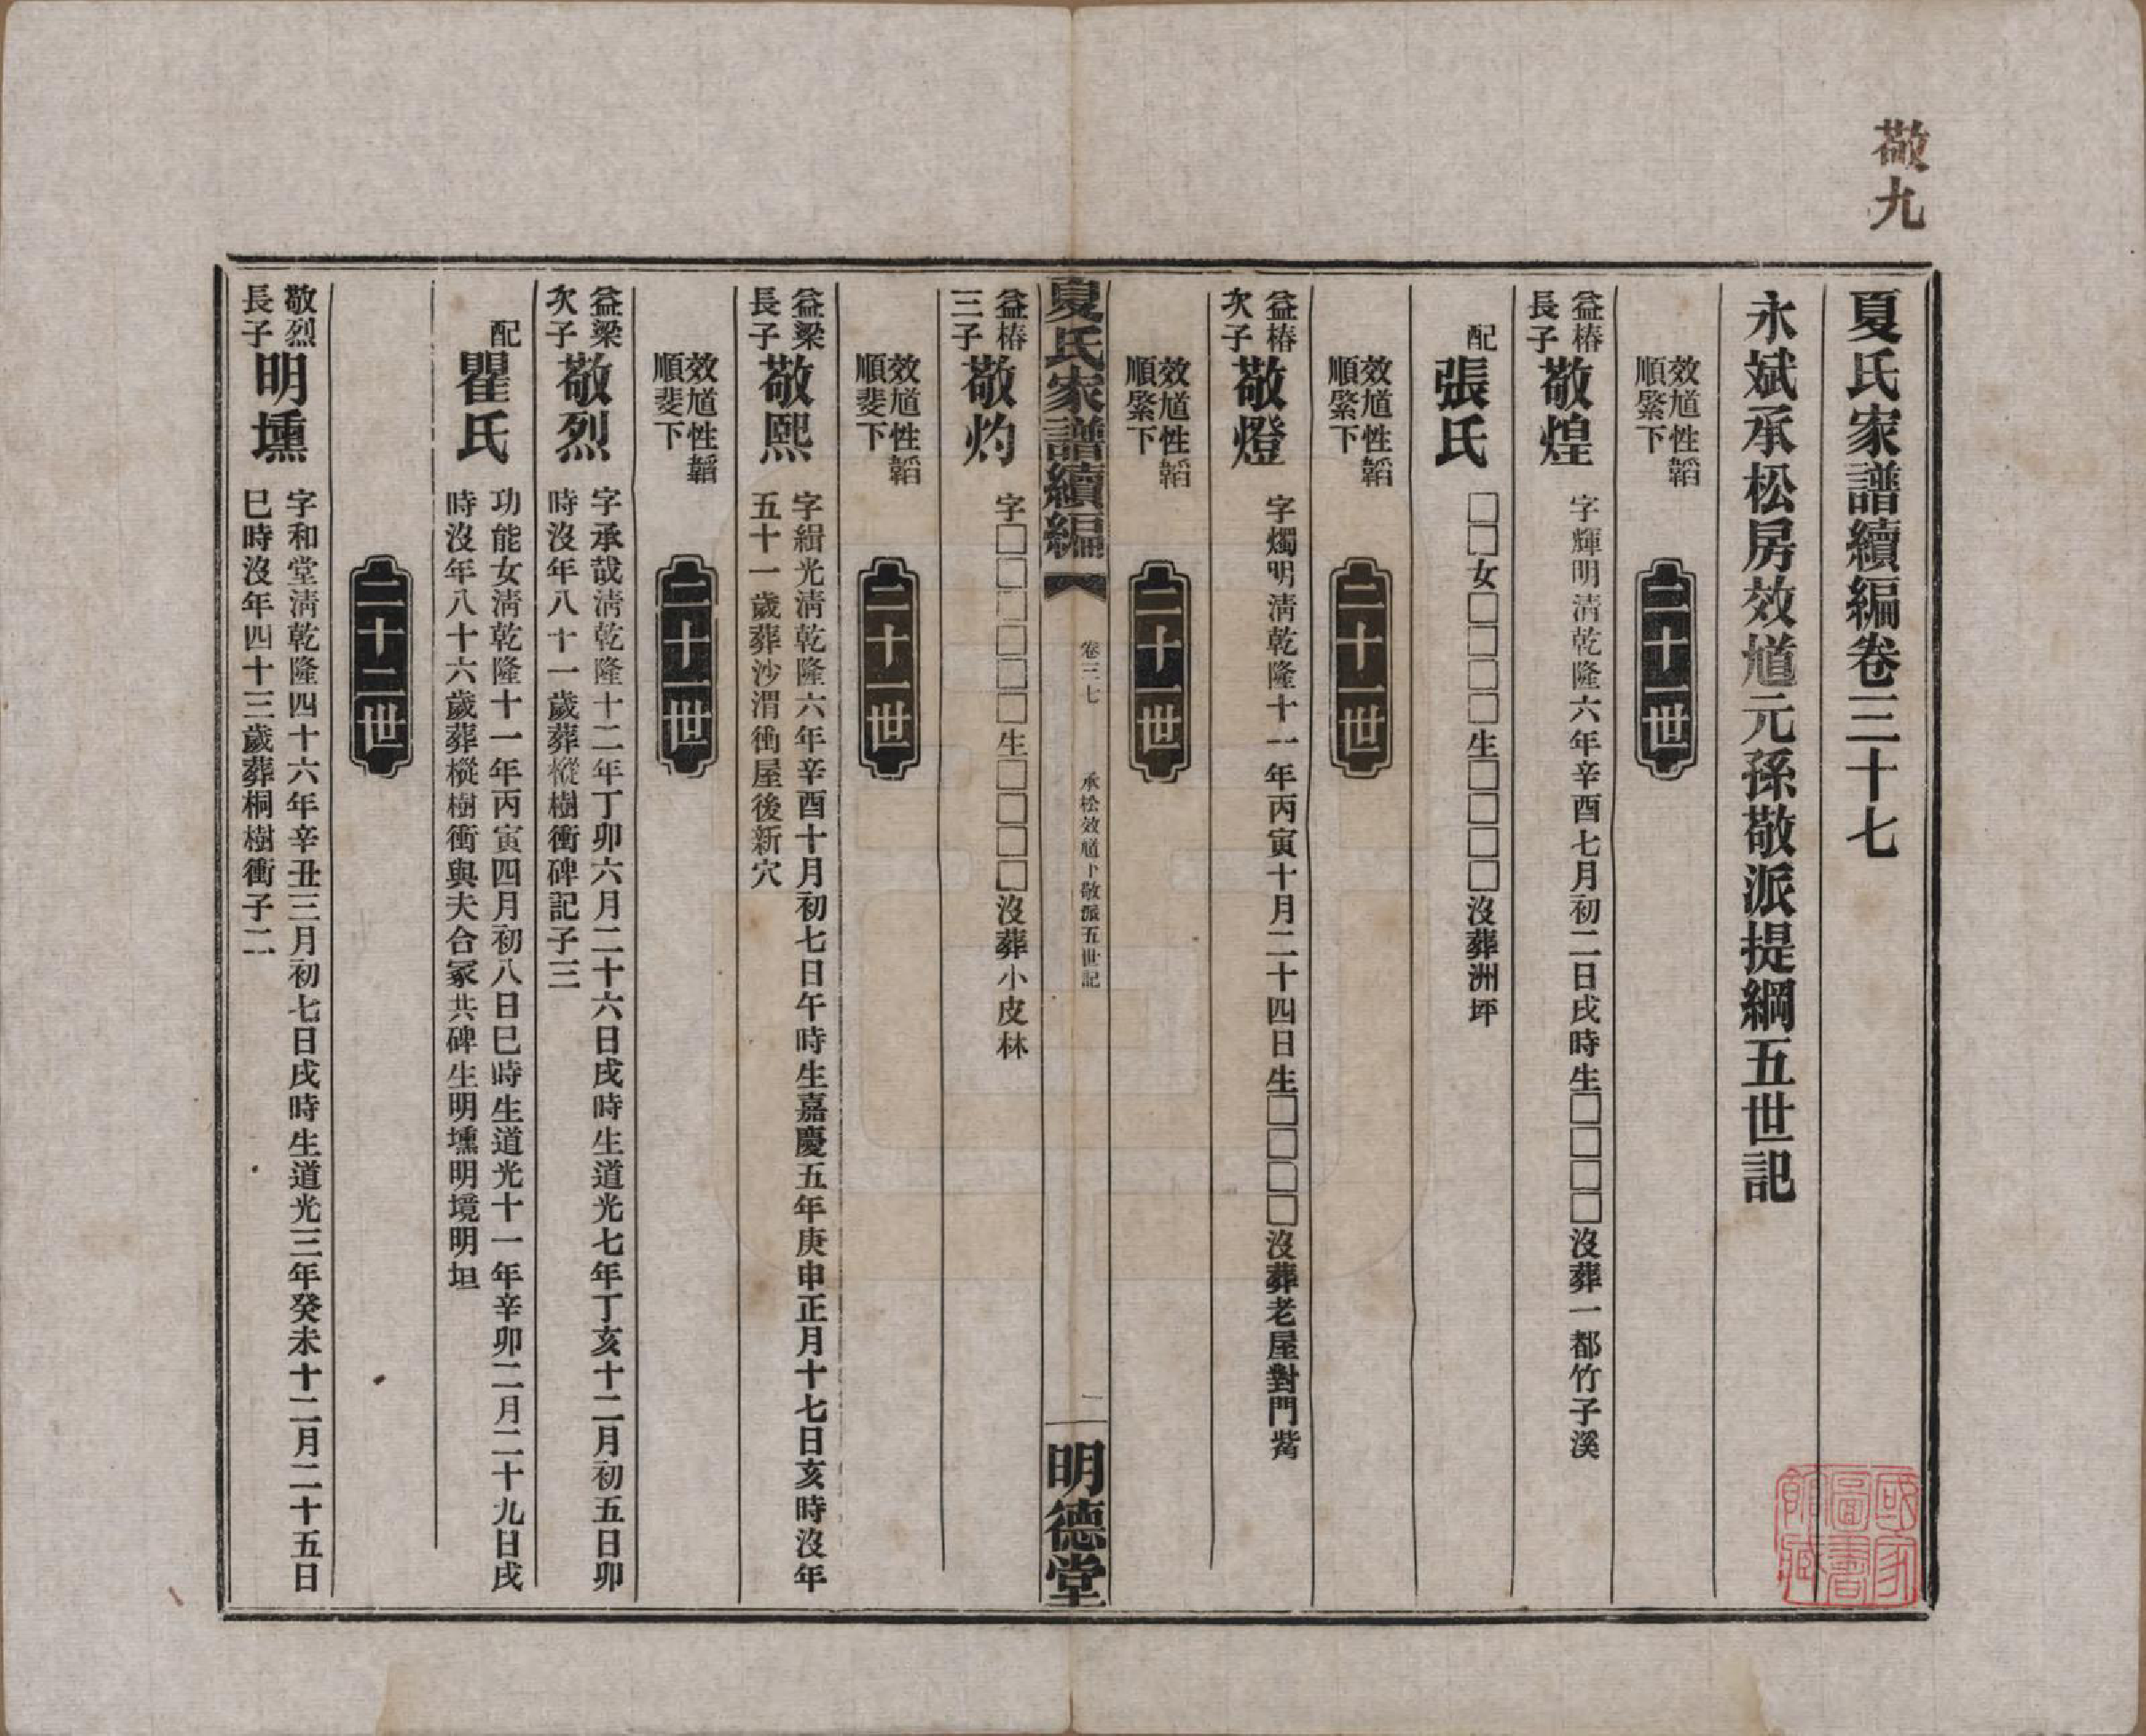 敬九
夏氏家譜續編卷三十七
永斌承松房效馗元孫敬派提綱五世記
效馗性韜
順縏下
二十一世
益椿
長子
敬煌
字輝明清乾隆六年辛酉七月初二日戌時生□□□□沒葬一都竹子溪
配
張氏
□□女□□□□生□□□□沒葬洲坪
效馗性韜
順縏下
二十一世
益椿
次子
敬燈
字燭明清乾隆十一年丙寅十月二十四日生□□□□沒葬老屋對門觜
效馗性韜
順縏下
二十一世
夏氏家譜續編
卷三七
承松效馗下敬派五世記
一
明德堂
益椿
三子
敬灼
字□□□□□□生□□□□沒葬小皮林
效馗性韜
順斐下
二十一世
益梁
長子
敬熙
字緝光清乾隆六年辛酉十月初七日午時生嘉慶五年庚申正月十七日亥時沒年
五十一歲葬沙渭衝屋後新穴
效馗性韜
順斐下
二十一世
益梁
次子
敬烈
字承哉清乾隆十二年丁卯六月二十六日戌時生道光七年丁亥十二月初五日卯
時沒年八十一歲葬樅樹衝碑記子三
配
瞿氏
功能女清乾隆十一年丙寅四月初八日巳時生道光十一年辛卯二月二十九日戌
時沒年八十六歲葬樅樹衝與夫合冢共碑生明壎明境明坦
二十二世
敬烈
長子
明壎
字和堂清乾隆四十六年辛丑三月初七日戌時生道光三年癸未十二月二十五日
巳時沒年四十三歲葬桐樹衝子二
國家
圖書
館藏